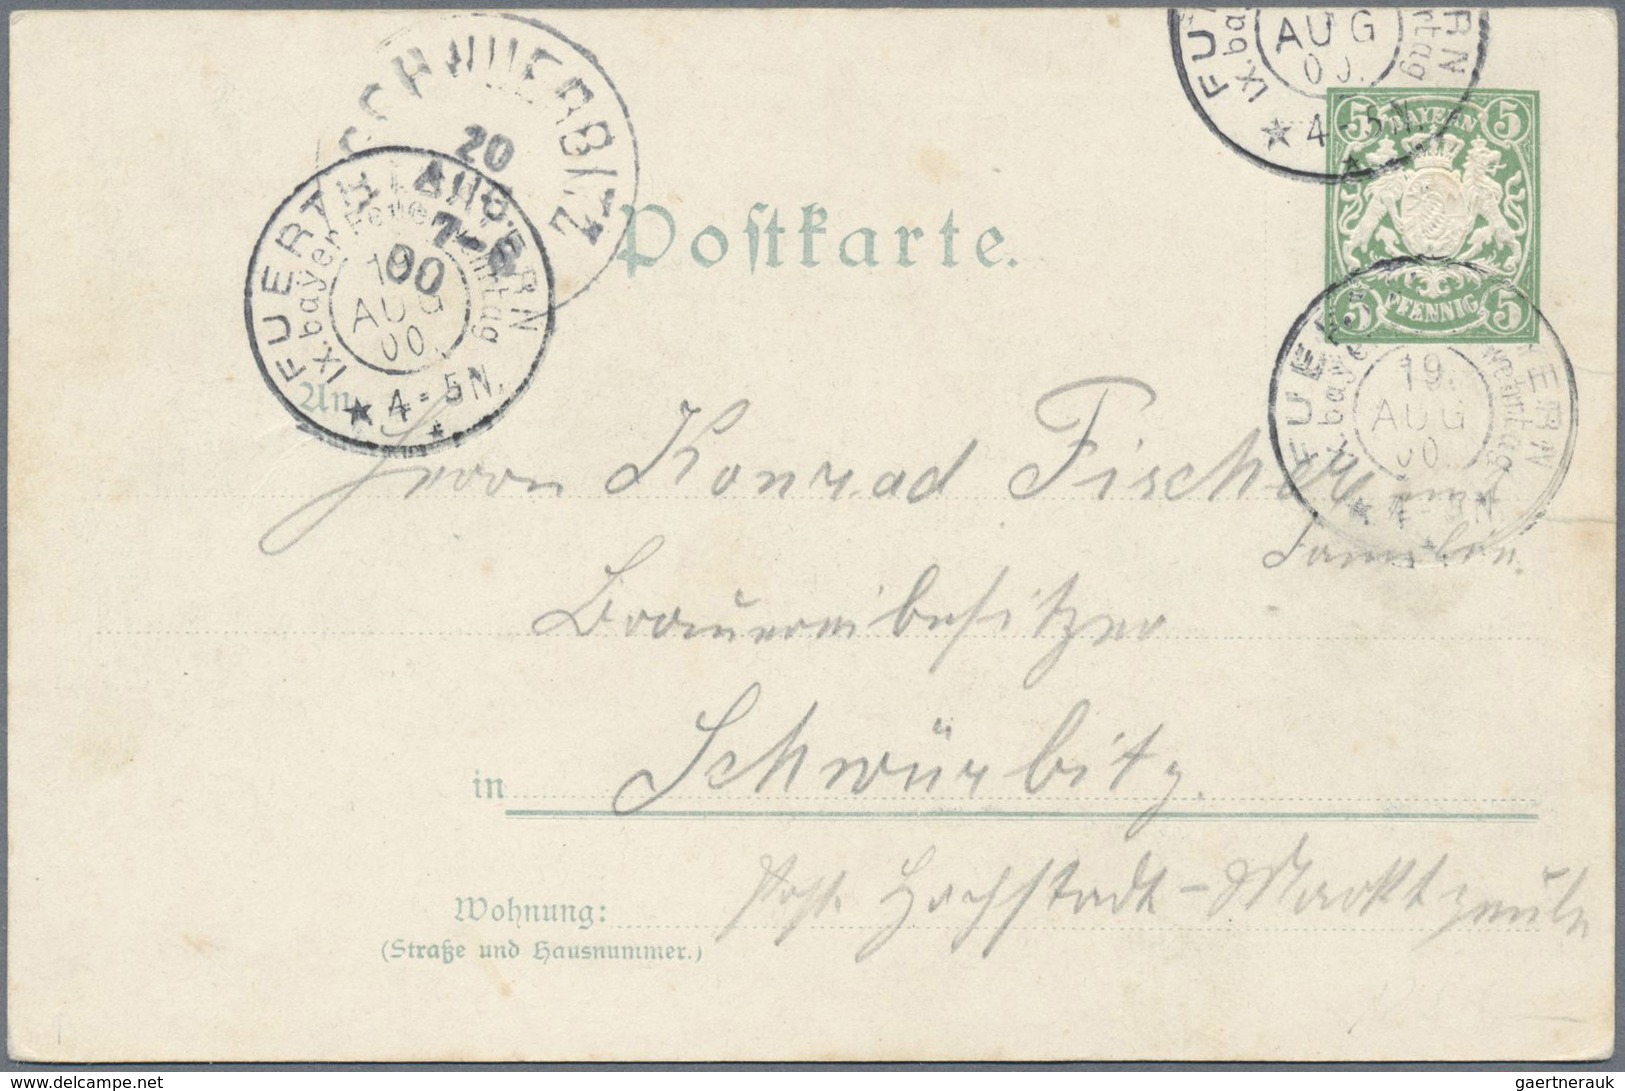 FUERTH
ERN
IX. bay
rtag
AUG
00.
4-5N.
SCHWUERBITZ
20
AUG.
7-8
00
5 BAYERN 5
5 PFENNIG 5
Postkarte.
FUERTH BAYERN
IX. bayer. Feuerwehrtag
19
AUG
00.
4-5N.
FUERTH BAYERN
IX. bayer. Feuerwehrtag
19.
AUG
00.
4-5N.
An
Herrn Konrad Fischer und
Familie.
Brauereibesitzer
in Schwürbitz.
Wohnung: Post Hochstadt-Marktzeuln
(Straße und Hausnummer.)
www.delcampe.net
gaertnerauk